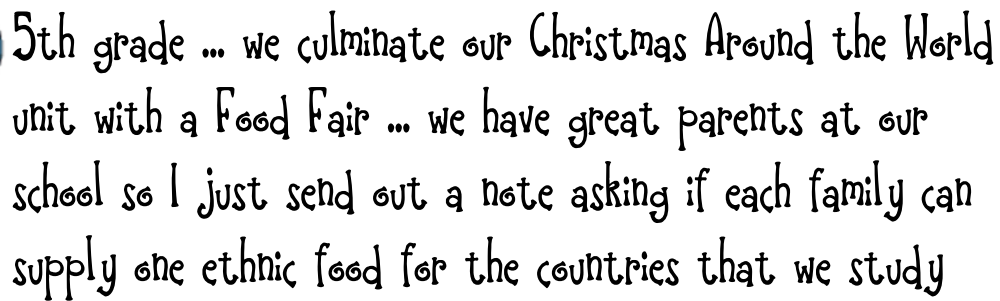 5th grade ... we culminate our Christmas Around the World
unit with a Food Fair ... we have great parents at our
school so I just send out a note asking if each family can
supply one ethnic food for the countries that we study